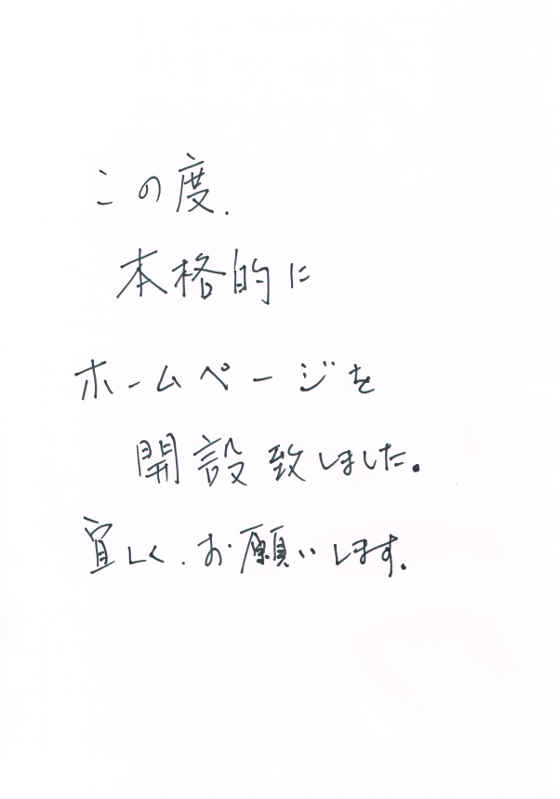 この度.
本格的に
ホームページを
開設致しました。
宜しく.お願いします.